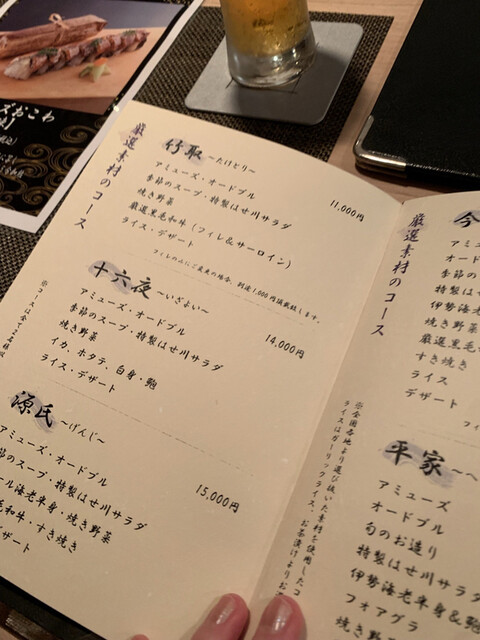 ズおこわ
厳選素材のコース
竹取 〜たけとり〜
11,000円
アミューズ・オードブル
季節のスープ・特製はせ川サラダ
焼き野菜
厳選黒毛和牛（フィレ＆サーロイン）
ライス・デザート
十六夜 〜いざよい〜
14,000円
アミューズ・オードブル
季節のスープ・特製はせ川サラダ
焼き野菜
イカ、ホタテ、白身・鮑
ライス・デザート
源氏 〜げんじ〜
15,000円
アミューズ・オードブル
節のスープ・特製はせ川サラダ
ール海老半身・焼き野菜
毛和牛・すき焼き
デザート
厳選素材のコース
今
アミュ
オード
季節の
特製は
伊勢海
焼き野
厳選黒毛
すき焼き
ライス
デザート
平家 〜へ
アミューズ
オードブル
旬のお造り
特製はせ川サラダ
伊勢海老半身＆鮑
フォアグラ
焼き野
※全国各地より選び抜いた素材を使用したコ
ライスはガーリックライス・お茶漬けよりお